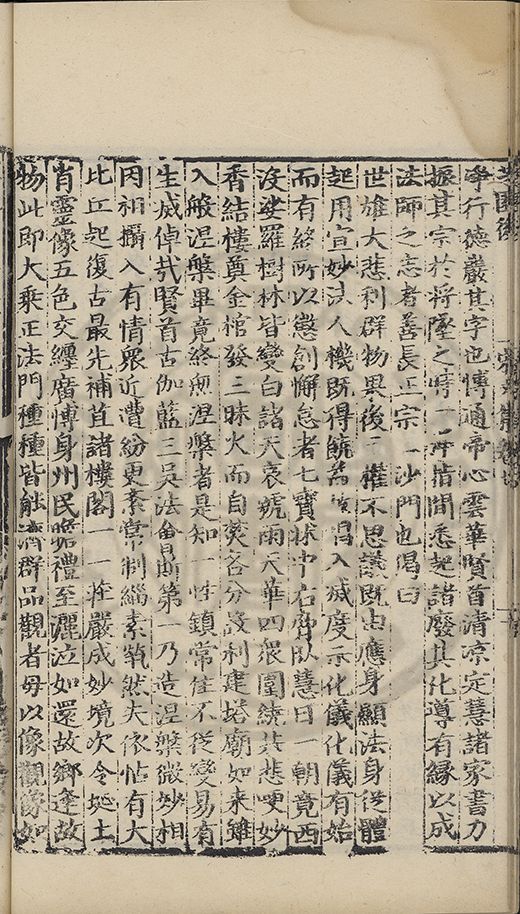 淨行德嚴其字也慱通帝心雲華賢首清凉定慧諸家書力
振其宗於將墜之時一 指間悉起諸廢其化導有緣以成
法師之志者善長正宗二沙門也偈曰
世雄大悲利群物異後二權不思議既由應身顯法身從體
起用宣妙法人機既得饒益 唱入滅度示化儀化儀有始
而有終所以懲創懈怠者七寶牀中右脅臥慧日一朝竟西
沒娑羅樹林皆變白諸天哀號雨天華四衆圍繞共悲哽妙
香結樓奠金棺發三昧火而自焚容分設利建塔廟如來雖
入般涅槃畢竟終無涅槃者是知 性鎮常住不從變易有
生滅偉哉賢首古伽藍三吳法 第一乃造涅槃微妙相
因相攝入有情衆近遭紛更紊常制緇素煢然失依怙有大
比丘起復古最先補苴諸樓閣一一莊嚴成妙境次令埏土
肖靈像五色交纏廣慱身州民瞻禮至灑泣如還故鄉逢故
物此即大乘正法門種種皆能濟群品觀者毋以像觀像如